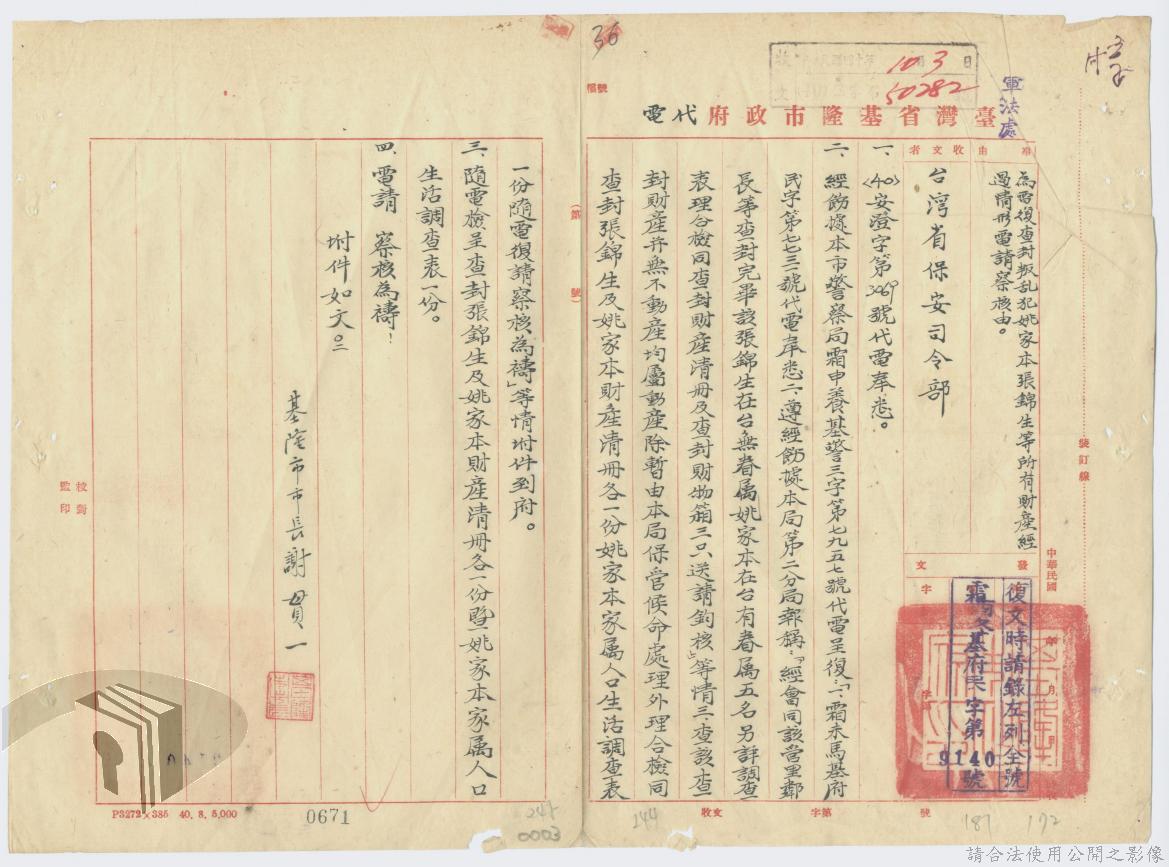 36
10 3
50282
軍法處
臺灣省基隆市政府代電
事由
為電復查封叛乱犯姚家本張錦生等所有財產經
過情形電請察核由。
收文者
台灣省保安司令部
一、〈40〉安澄字第3069號代電奉悉。
二、經飭據本市警察局霜申養基警三字第七九五七號代電呈復「一、霜未馬基府
民字第七七三一號代電奉悉二、遵經飭據本局第二分局報稱:「經會同該管里鄰
長等查封完畢該張錦生在台無眷属姚家本在台有眷属五名另詳調查
表理合檢同查封財產清冊及查封財物箱三只送請鈞核」等情三、查該查
封財產并無不動產均屬動產除暫由本局保管候命處理外理合檢同
查封張錦生及姚家本財產清冊各一份姚家本家属人口生活調查表
一份隨電復請察核為禱」等情附件到府。
三、隨電檢呈查封張錦生及姚家本財產清冊各一份暨姚家本家属人口
生活調查表一份。
四、電請 察核為禱!
附件如文。
基隆市市長謝貫一
裝訂線
中華民國
年 月 日
發文
字
復文時請錄左列全號
基府民字第
9140號
(第 號)
校對
監印
P3272×385 40. 8. 5,000
0671
247
0003
244
收文
字第
號
187 172
請合法使用公開之影像